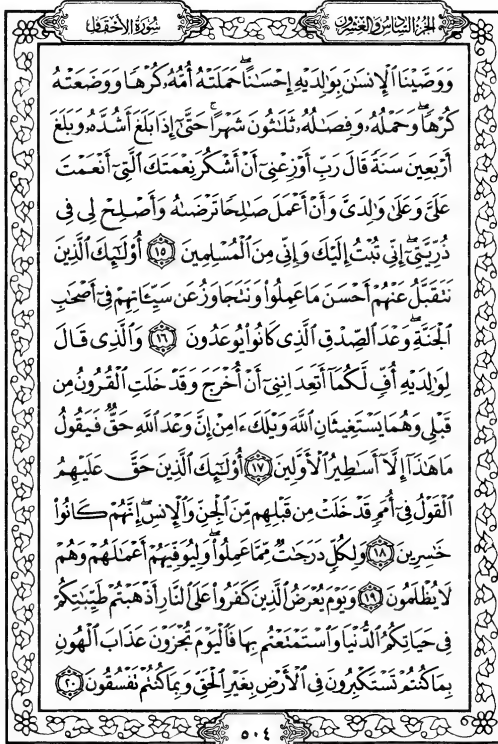 الجزء السادس والعشرون
سورة الأحقاف
وَوَصَّيْنَا ٱلْإِنسَٰنَ بِوَٰلِدَيْهِ إِحْسَٰنًا ۖ حَمَلَتْهُ أُمُّهُۥ كُرْهًا وَوَضَعَتْهُ
كُرْهًا ۖ وَحَمْلُهُۥ وَفِصَٰلُهُۥ ثَلَٰثُونَ شَهْرًا ۚ حَتَّىٰٓ إِذَا بَلَغَ أَشُدَّهُۥ وَبَلَغَ
أَرْبَعِينَ سَنَةً قَالَ رَبِّ أَوْزِعْنِىٓ أَنْ أَشْكُرَ نِعْمَتَكَ ٱلَّتِىٓ أَنْعَمْتَ
عَلَىَّ وَعَلَىٰ وَٰلِدَىَّ وَأَنْ أَعْمَلَ صَٰلِحًا تَرْضَىٰهُ وَأَصْلِحْ لِى فِى
ذُرِّيَّتِىٓ ۖ إِنِّى تُبْتُ إِلَيْكَ وَإِنِّى مِنَ ٱلْمُسْلِمِينَ ﴿١٥﴾ أُو۟لَٰٓئِكَ ٱلَّذِينَ
نَتَقَبَّلُ عَنْهُمْ أَحْسَنَ مَا عَمِلُوا۟ وَنَتَجَاوَزُ عَن سَيِّـَٔاتِهِمْ فِىٓ أَصْحَٰبِ
ٱلْجَنَّةِ ۖ وَعْدَ ٱلصِّدْقِ ٱلَّذِى كَانُوا۟ يُوعَدُونَ ﴿١٦﴾ وَٱلَّذِى قَالَ
لِوَٰلِدَيْهِ أُفٍّ لَّكُمَآ أَتَعِدَانِنِىٓ أَنْ أُخْرَجَ وَقَدْ خَلَتِ ٱلْقُرُونُ مِن
قَبْلِى وَهُمَا يَسْتَغِيثَانِ ٱللَّهَ وَيْلَكَ ءَامِنْ إِنَّ وَعْدَ ٱللَّهِ حَقٌّ فَيَقُولُ
مَا هَٰذَآ إِلَّآ أَسَٰطِيرُ ٱلْأَوَّلِينَ ﴿١٧﴾ أُو۟لَٰٓئِكَ ٱلَّذِينَ حَقَّ عَلَيْهِمُ
ٱلْقَوْلُ فِىٓ أُمَمٍ قَدْ خَلَتْ مِن قَبْلِهِم مِّنَ ٱلْجِنِّ وَٱلْإِنسِ ۖ إِنَّهُمْ كَانُوا۟
خَٰسِرِينَ ﴿١٨﴾ وَلِكُلٍّ دَرَجَٰتٌ مِّمَّا عَمِلُوا۟ ۖ وَلِيُوَفِّيَهُمْ أَعْمَٰلَهُمْ وَهُمْ
لَا يُظْلَمُونَ ﴿١٩﴾ وَيَوْمَ يُعْرَضُ ٱلَّذِينَ كَفَرُوا۟ عَلَى ٱلنَّارِ أَذْهَبْتُمْ طَيِّبَٰتِكُمْ
فِى حَيَاتِكُمُ ٱلدُّنْيَا وَٱسْتَمْتَعْتُم بِهَا فَٱلْيَوْمَ تُجْزَوْنَ عَذَابَ ٱلْهُونِ
بِمَا كُنتُمْ تَسْتَكْبِرُونَ فِى ٱلْأَرْضِ بِغَيْرِ ٱلْحَقِّ وَبِمَا كُنتُمْ نَفْسُقُونَ ﴿٢٠﴾
٥٠٤